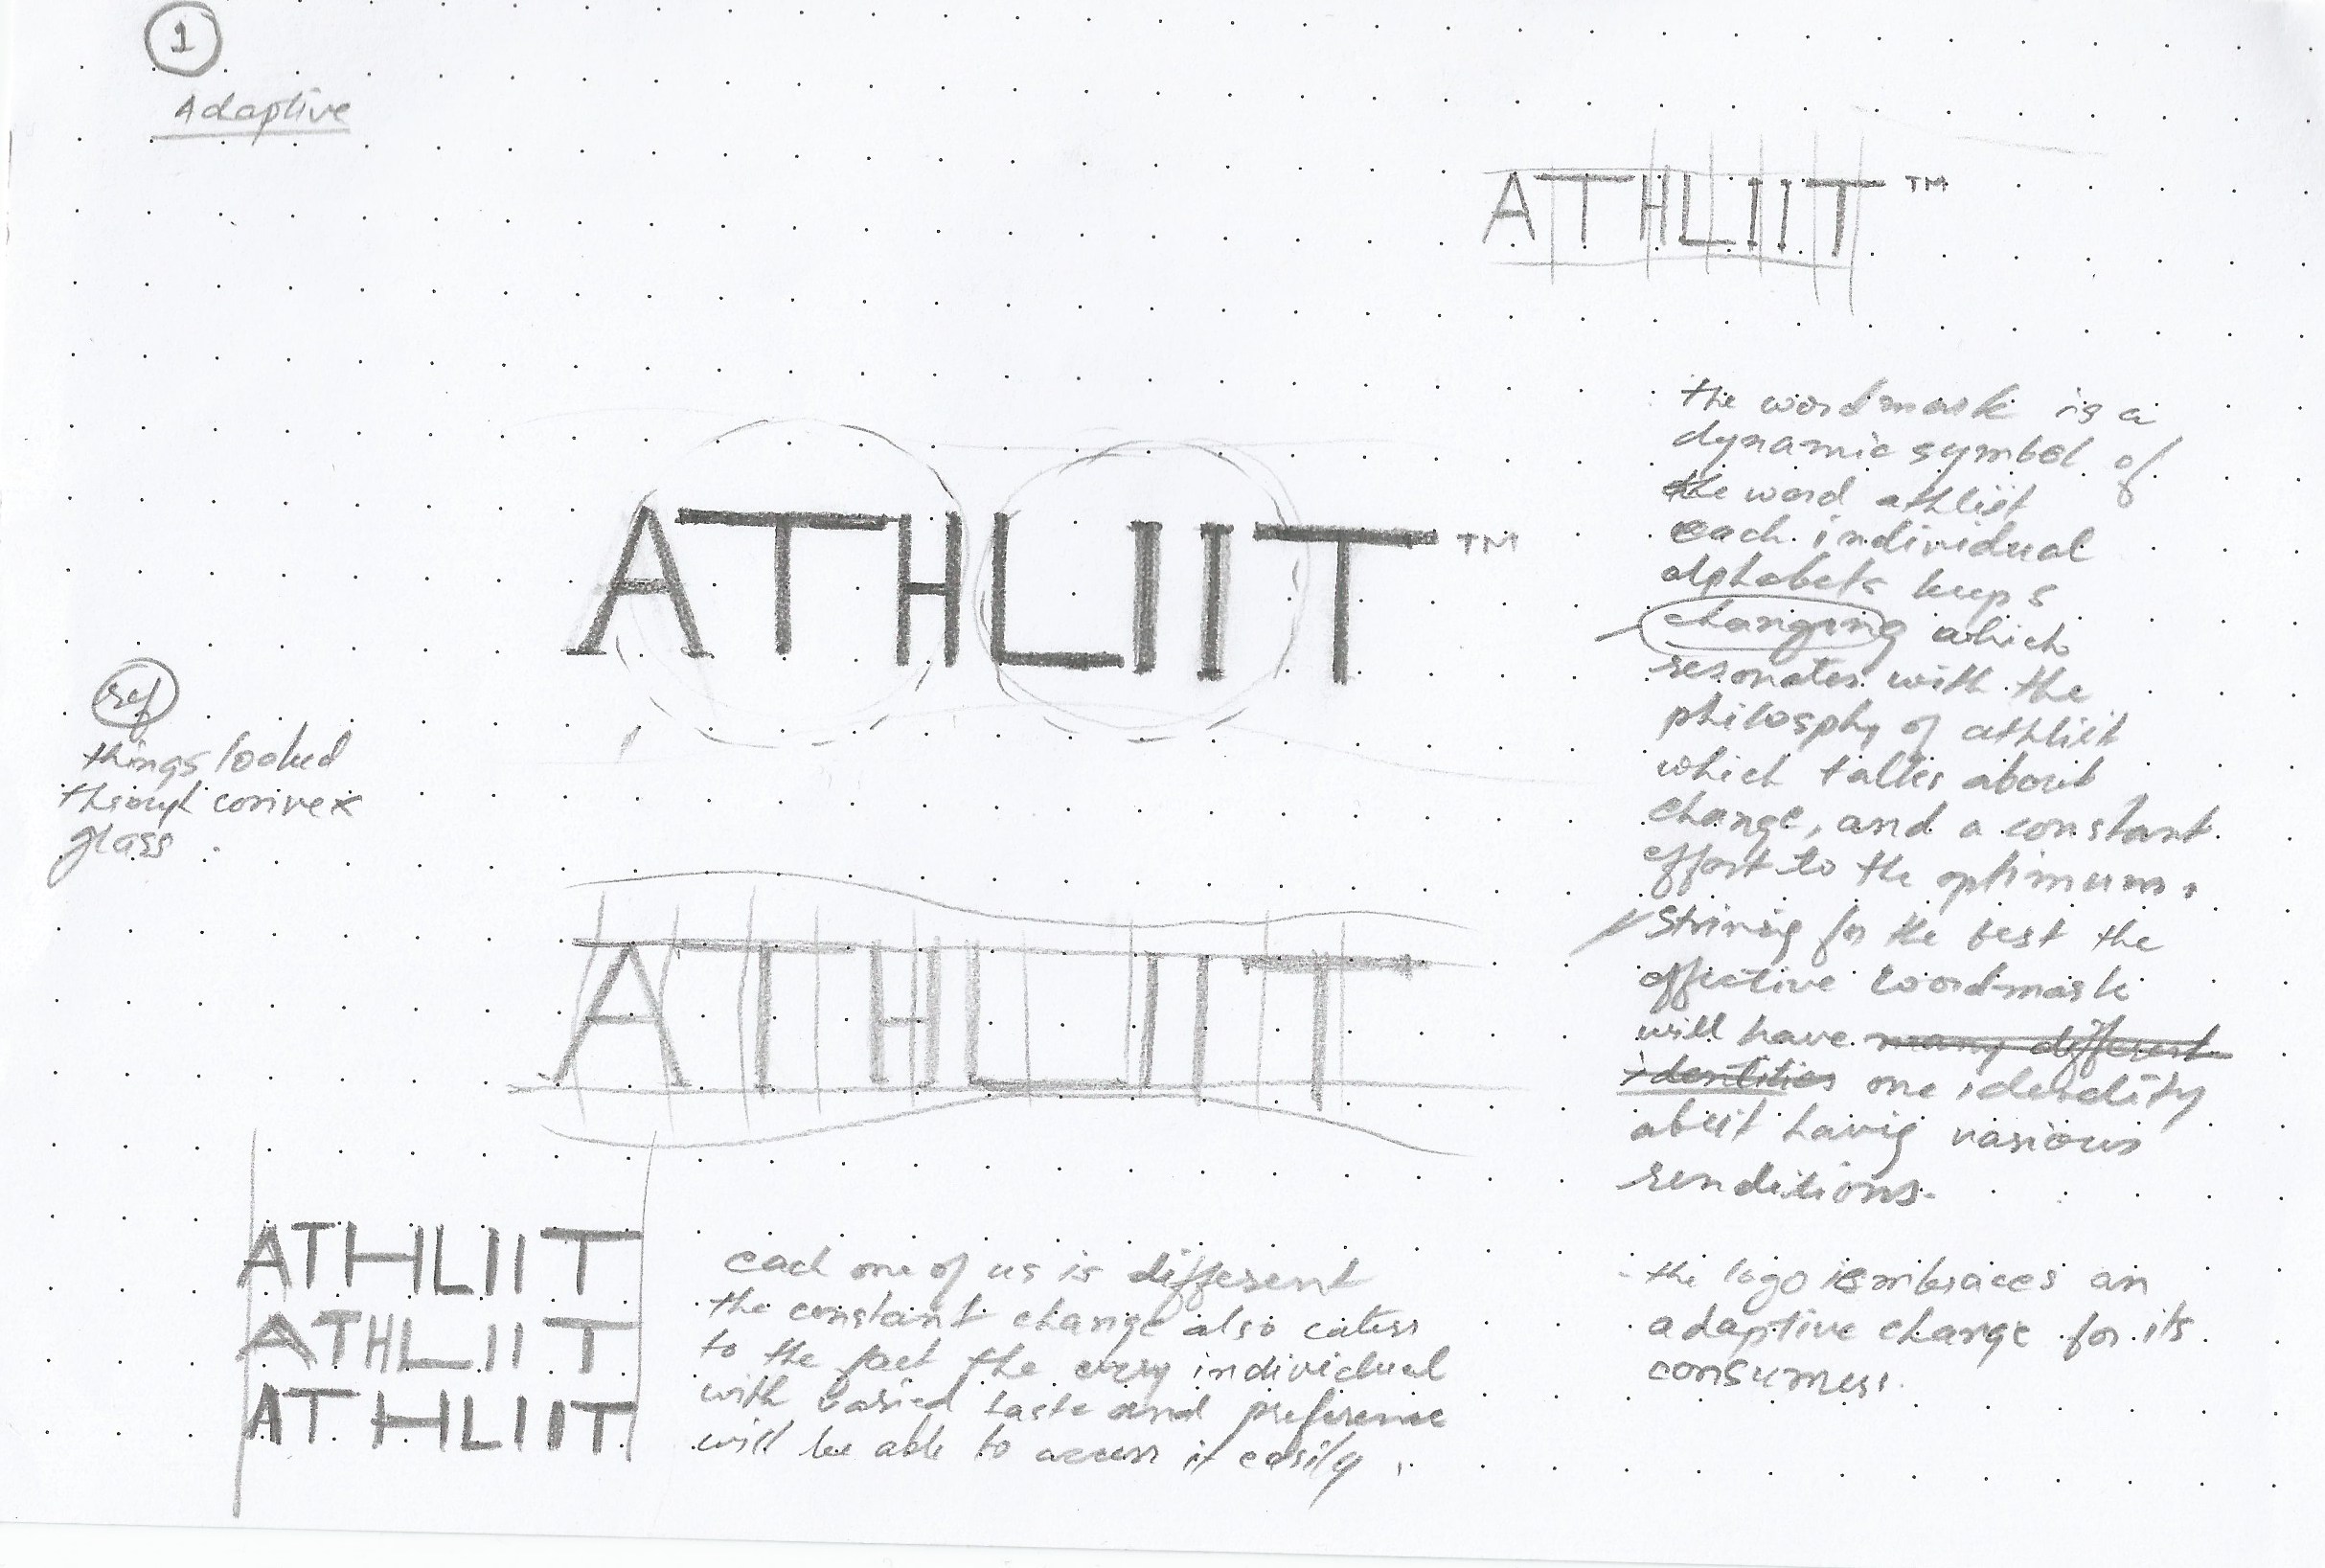 1
Adaptive
ATHLIIT TM
ATHLIIT TM
ref
things looked
through convex
glass.
ATHLIIT
ATHLIIT
ATHLIIT
ATHLIIT
each one of us is different
the constant change also caters
to the fact the every individual
with varied taste and preference
will be able to access it easily.
the wordmark is a
dynamic symbol of
the word athliit
each individual
alphabets keeps
changing which
resonates with the
philosphy of athliit
which talks about
change, and a constant
effort to the optimum.
Striving for the best the
effective wordmark
will have many different
identities one identity
albeit having various
renditions.
the logo embraces an
adaptive change for its
consumers.